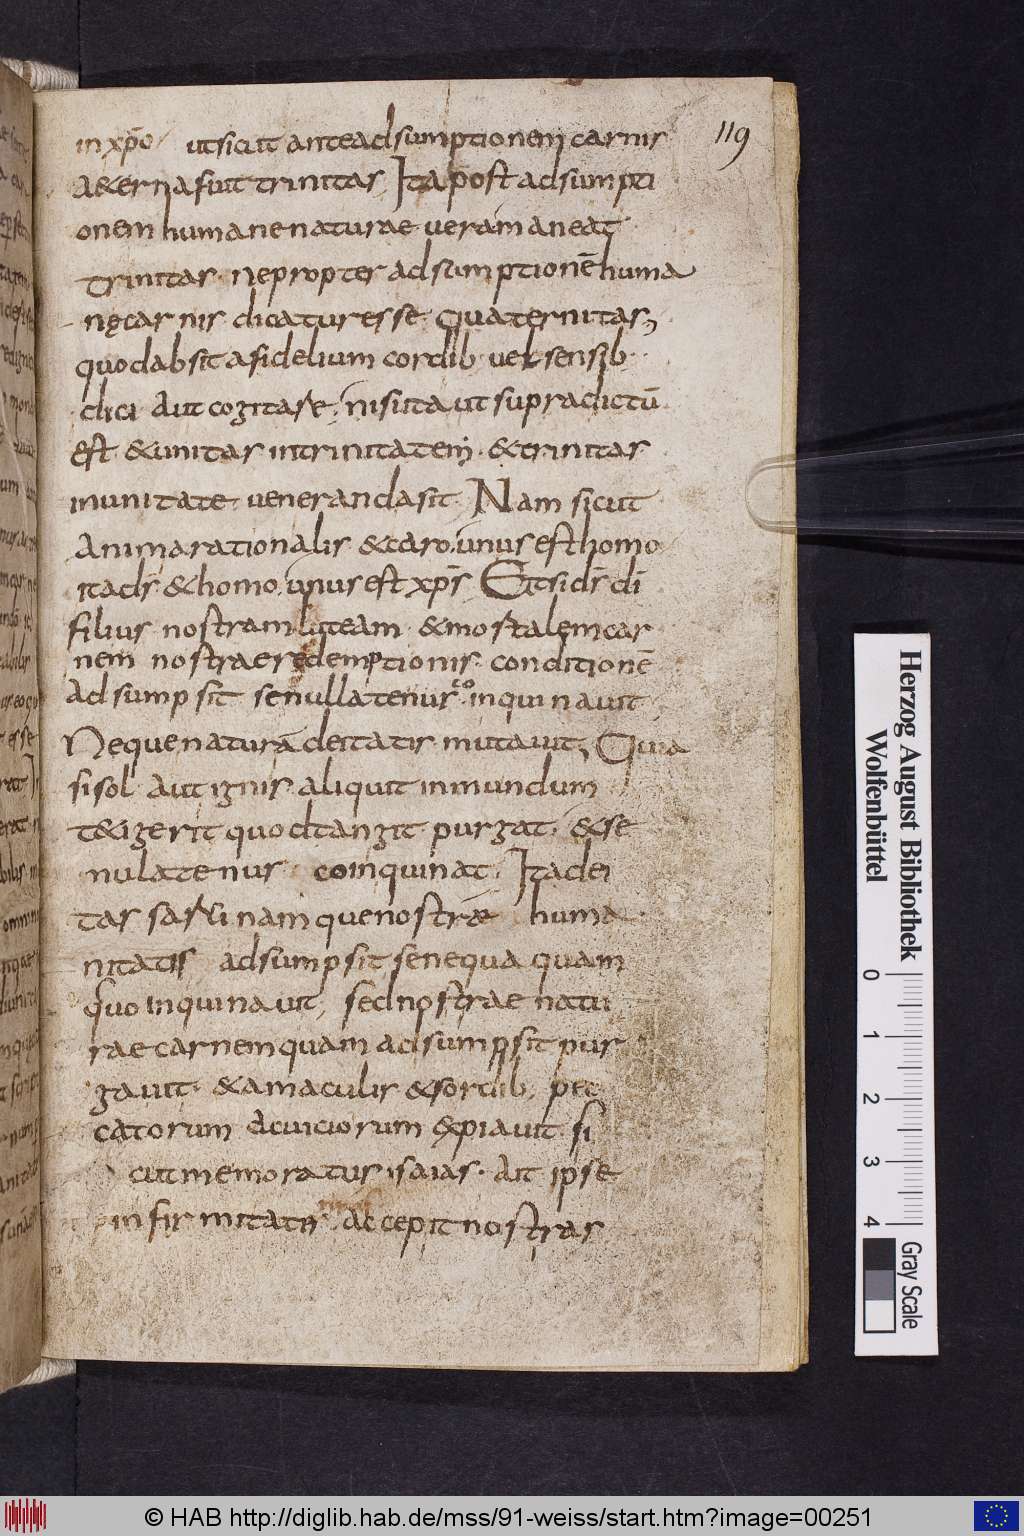 119
in xpō ut sicut ante adsumptionem carnis
a&erna fuit trinitas Ita post adsumpti
onem humane naturae vera maneat
trinitas ne propter adsumptionē huma
nę carnis dicatur esse quaternitas,
quod absit a fidelium cordib vel sensib
dici aut cogitare, nisi ita ut supradictū
est &unitas in trinitatem &trinitas
in unitate veneranda sit Nam sicut
anima rationalis &caro unus est homo
ita ds̄ &homo unus est xp̄s Et si ds̄ dī
filius nostram luteam &mortalem car
nem nostrae redemptionis conditionē
adsumpsit se nullatenus co inquinavit
Neque naturā deitatis mutavit, Quia
si sol aut ignis aliquit inmundum
t&igerit quod tangit purgat, &se
nulatenus coinquinat Ita dei
tas namque nostrae huma
nitatis adsumpsit se nequaquam
quo inquinavit, sed nostrae natu
rae carnem quam adsumpsit pur
gavit &a maculis &sordib, pec
catorum ac viciorum &piavit si
cut memoratus isaias. ait ipse
infirmitates accepit nostras
Herzog August Bibliothek
Wolfenbüttel
0 1 2 3 4
Gray Scale
© HAB http://diglib.hab.de/mss/91-weiss/start.htm?image=00251